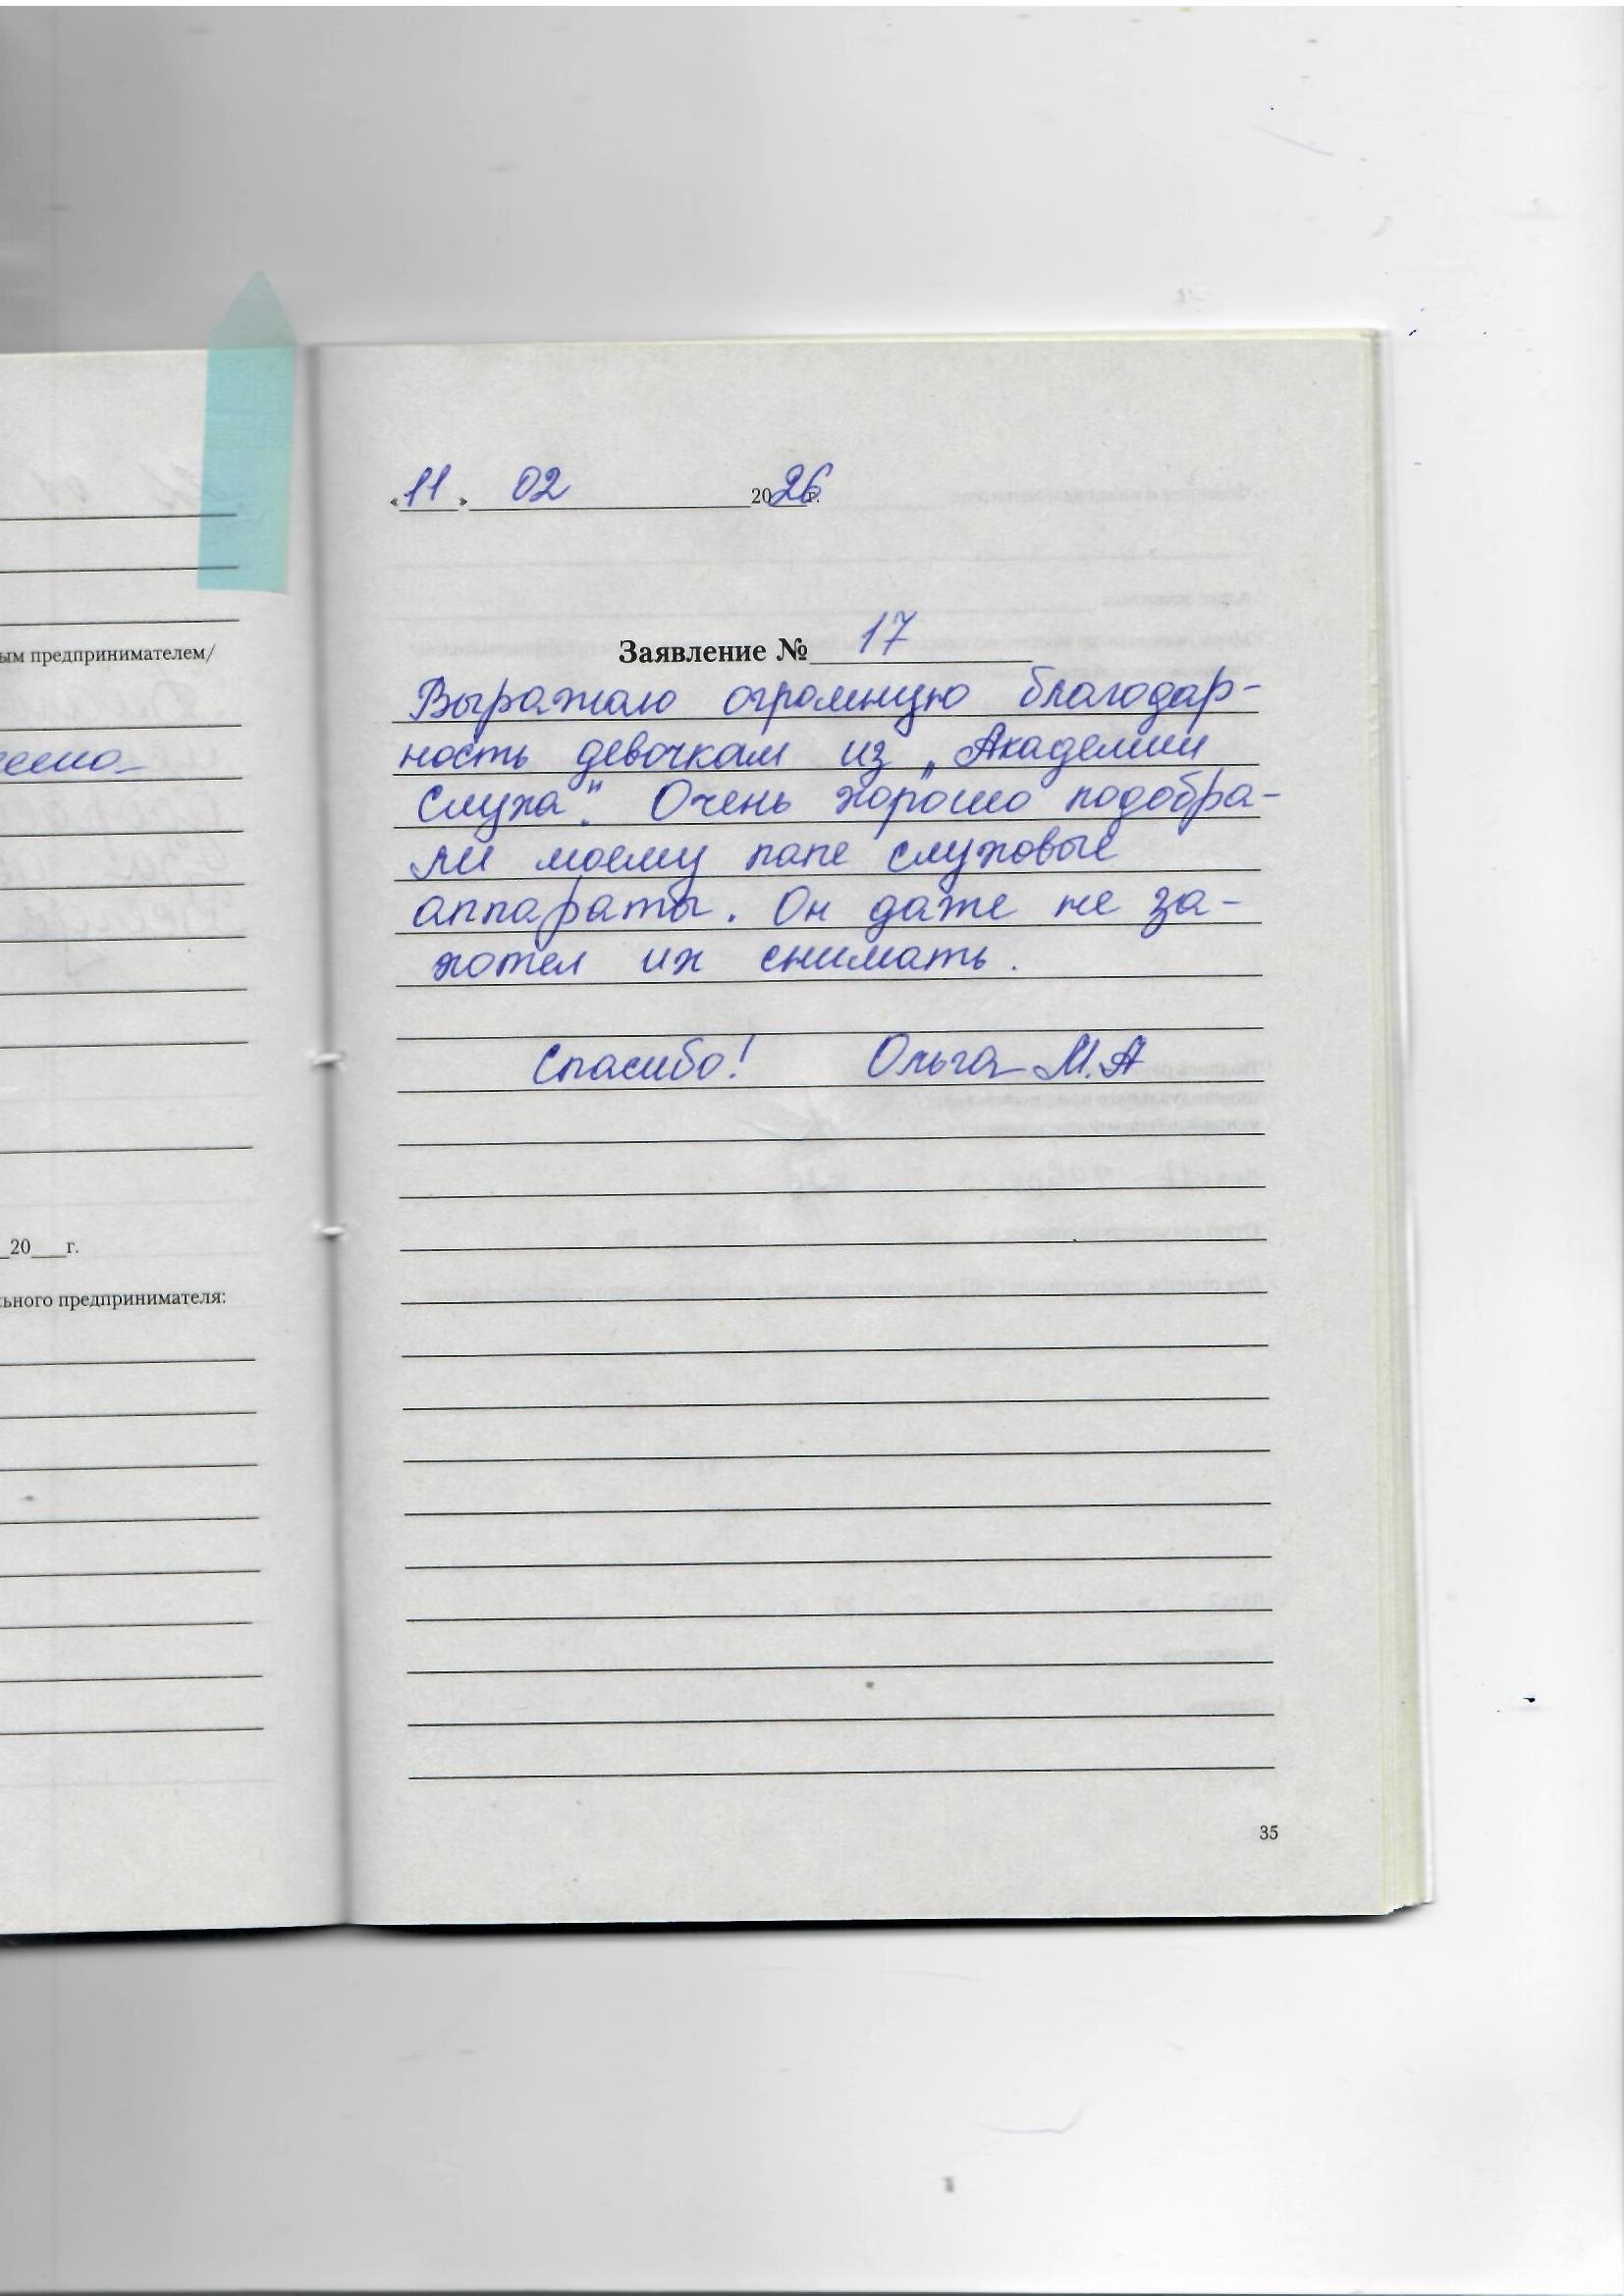 ым предпринимателем/
20___г.
ьного предпринимателя:
«11» 02 2026г.
Заявление № 17
Выражаю огромную благодар-
ность девочкам из „Академии
Слуха". Очень хорошо подобра-
ли моему папе слуховые
аппараты. Он даже не за-
хотел их снимать.
Спасибо! Ольга М.А
35